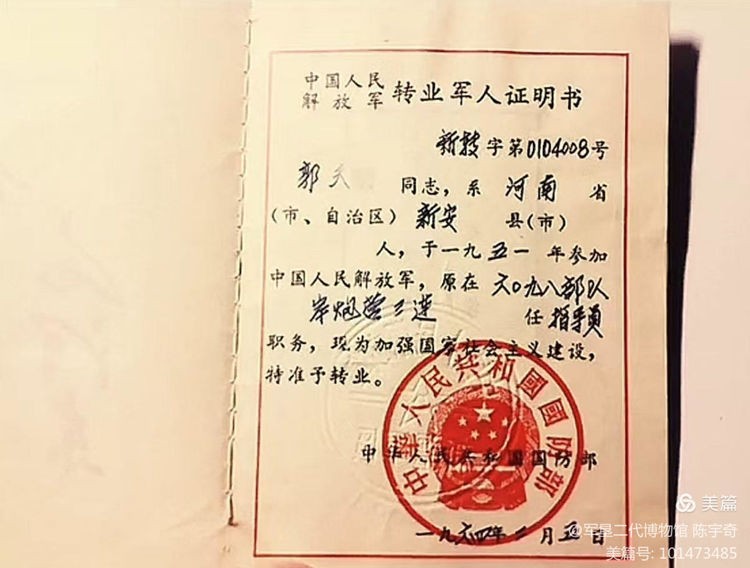 中国人民
解放军 转业军人证明书
新转字第0104008号
郭 同志，系 河南 省
（市、自治区） 新安 县（市）
人，于一九五一年参加
中国人民解放军，原在 六〇九八部队
炮营三连 任 指导员
职务，现为加强国家社会主义建设，
特准予转业。
中华人民共和国国防部
中华人民共和國國防部
一九六四年二月五日
美篇
@军垦二代博物馆 陈宇奇
美篇号: 101473485